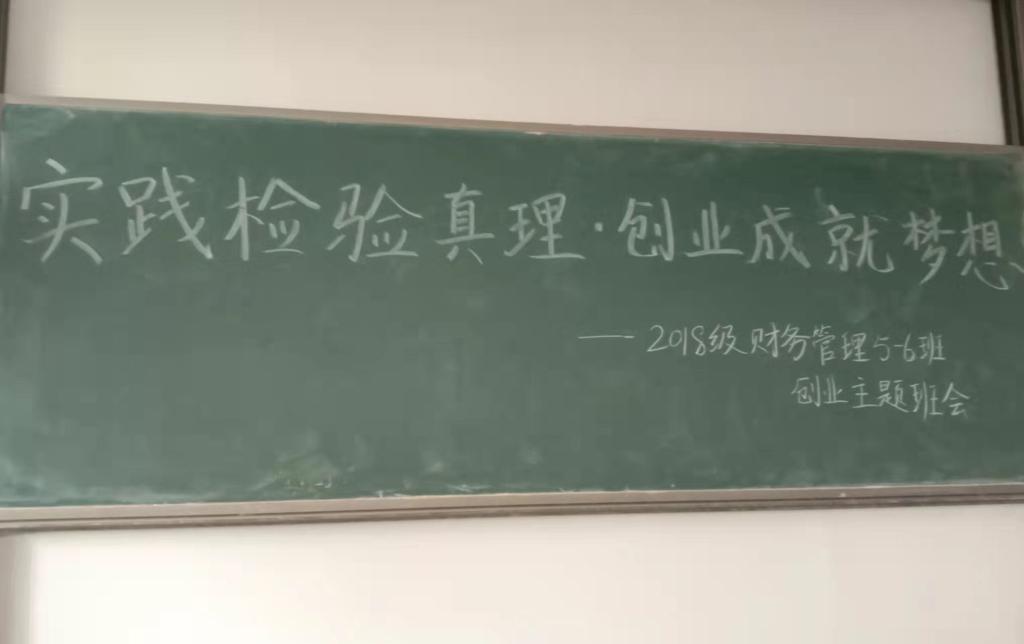 实践检验真理·创业成就梦想
——2018级财务管理5-6班
创业主题班会